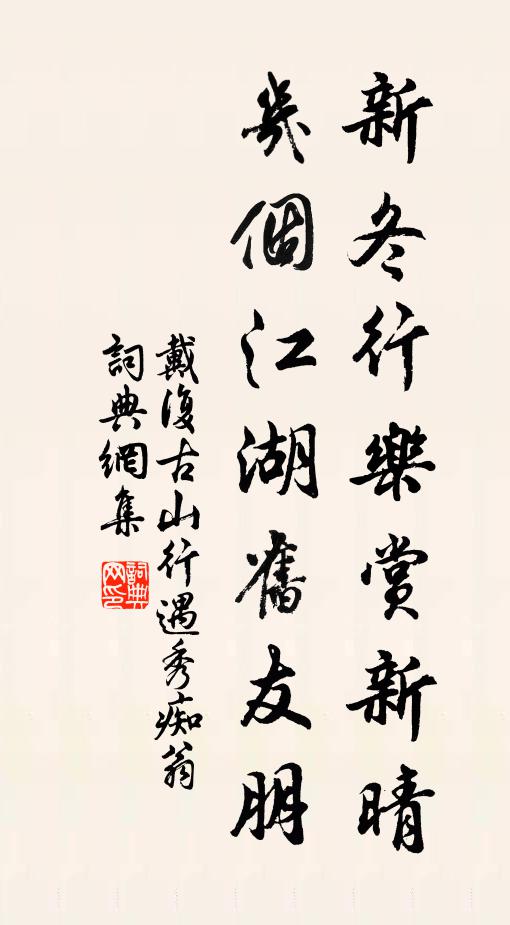 新冬行樂賞新晴
幾個江湖舊友朋
戴復古山行遇秀痴翁
詞典網集
詞典网印